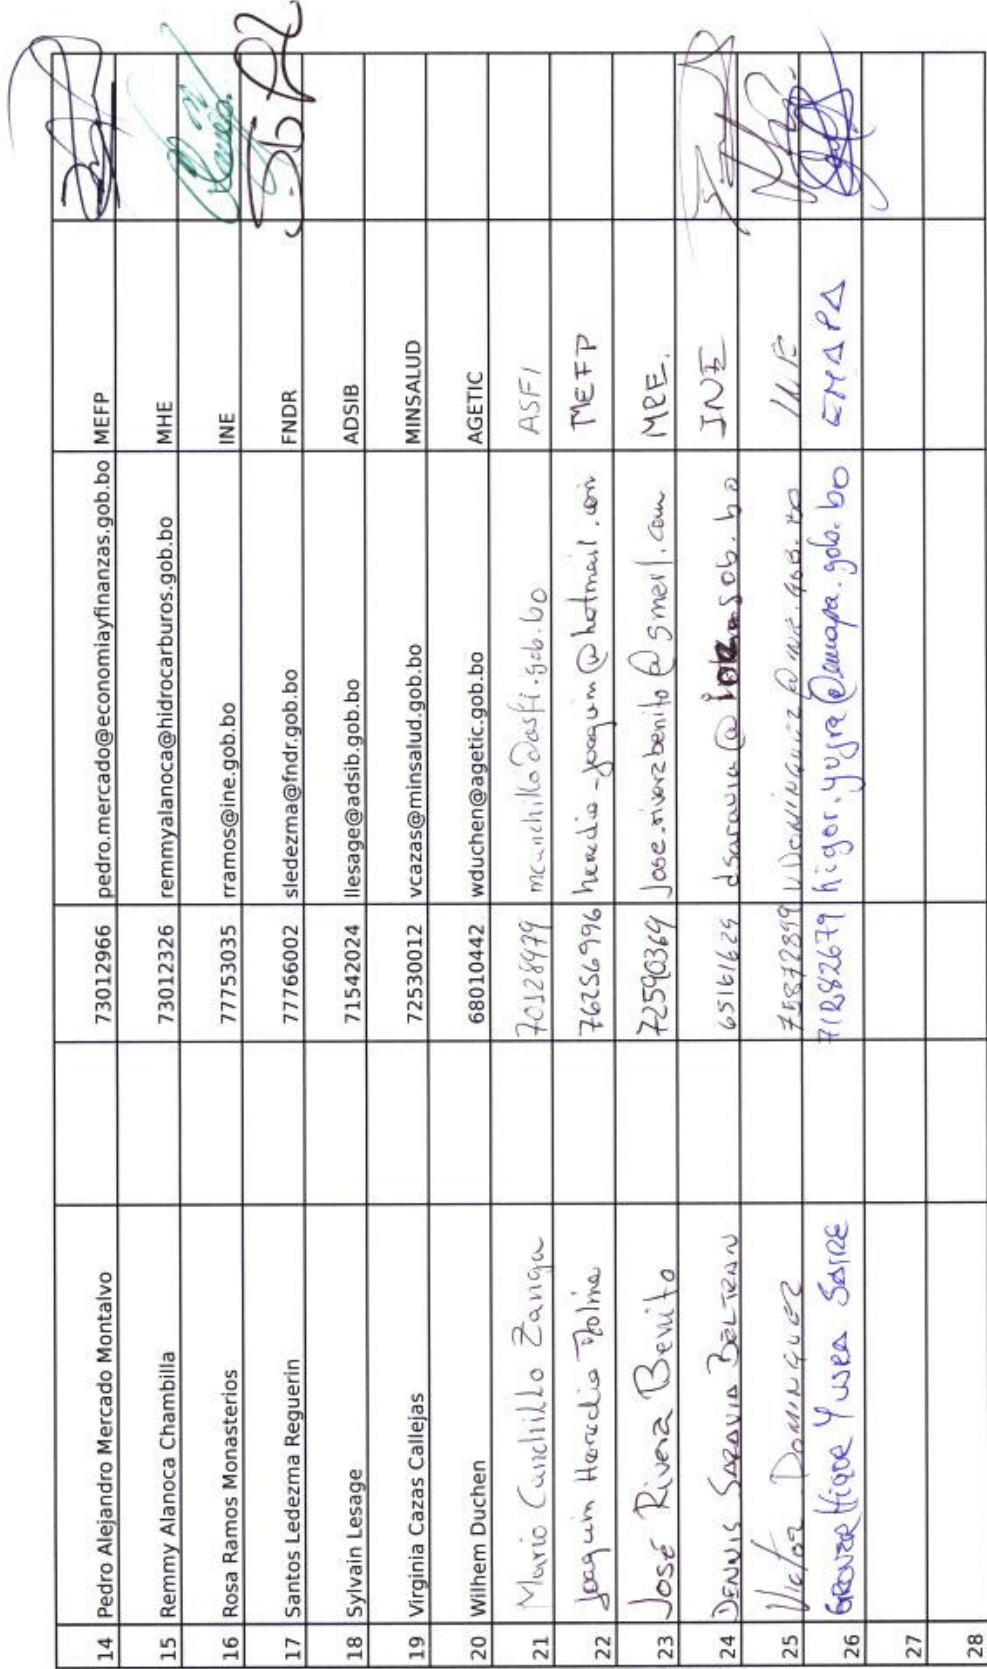 14 Pedro Alejandro Mercado Montalvo 73012966 pedro.mercado@economiayfinanzas.gob.bo MEFP
15 Remmy Alanoca Chambilla 73012326 remmyalanoca@hidrocarburos.gob.bo MHE
16 Rosa Ramos Monasterios 77753035 rramos@ine.gob.bo INE
17 Santos Ledezma Reguerin 77766002 sledezma@fndr.gob.bo FNDR
18 Sylvain Lesage 71542024 llesage@adsib.gob.bo ADSIB
19 Virginia Cazas Callejas 72530012 vcazas@minsalud.gob.bo MINSALUD
20 Wilhem Duchen 68010442 wduchen@agetic.gob.bo AGETIC
21 Mario Canchillo Zanga 70128979 mcanchillo@asfi.gob.bo ASFI
22 Joaquin Heredia Molina 76256996 heredia-joaquin@hotmail.com MEFP
23 José Rivera Benito 72590369 jose.riverabenito@gmail.com
24 DENNIS SARAVIA BELTRAN 65161629 dsaravia@ine.gob.bo INE
25 Victor DOMINGUEZ 75872899 VDOMINGUEZ@INE.GOB.BO INE
26 71282679 higor.yujra@emapa.gob.bo EMAPA
27
28